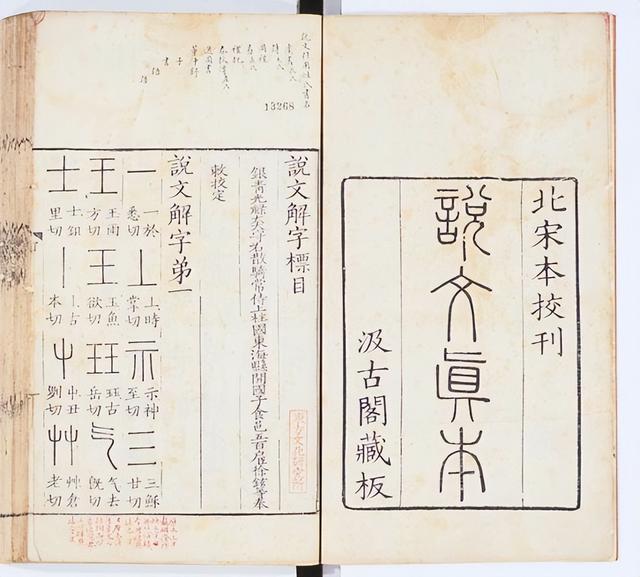 北宋本挍刊
說文眞本
汲古閣藏板
13268
說文解字標目
銀青光祿大夫守右散騎常侍上柱國東海縣開國子食邑五百戶徐鉉等奉
敕挍定
說文解字弟一
一 一於悉切 丄 丄時掌切 示 示神至切 三 三穌甘切
王 王雨方切 王 玉魚欲切 玨 玨古岳切 气 气去旣切
士 士鉏里切 丨 丨古本切 屮 屮丑劉切 艸 艸倉老切